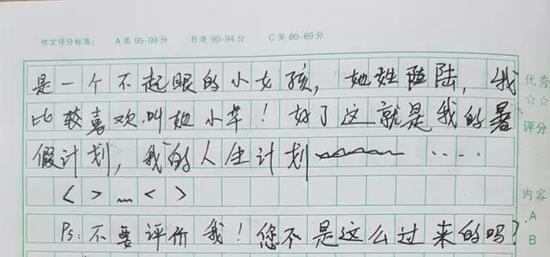 作文评分标准: A类 95-99分 B类 90-94分 C类 80-89分
是一个不起眼的小女孩,她姓陆,我
比较喜欢叫她小草!好了这就是我的暑
假计划,我的人生计划~~~~ ····
< > … < >
Ps:不要评价我!您不是这么过来的吗?
优秀
☆☆
评分
内容
A
B